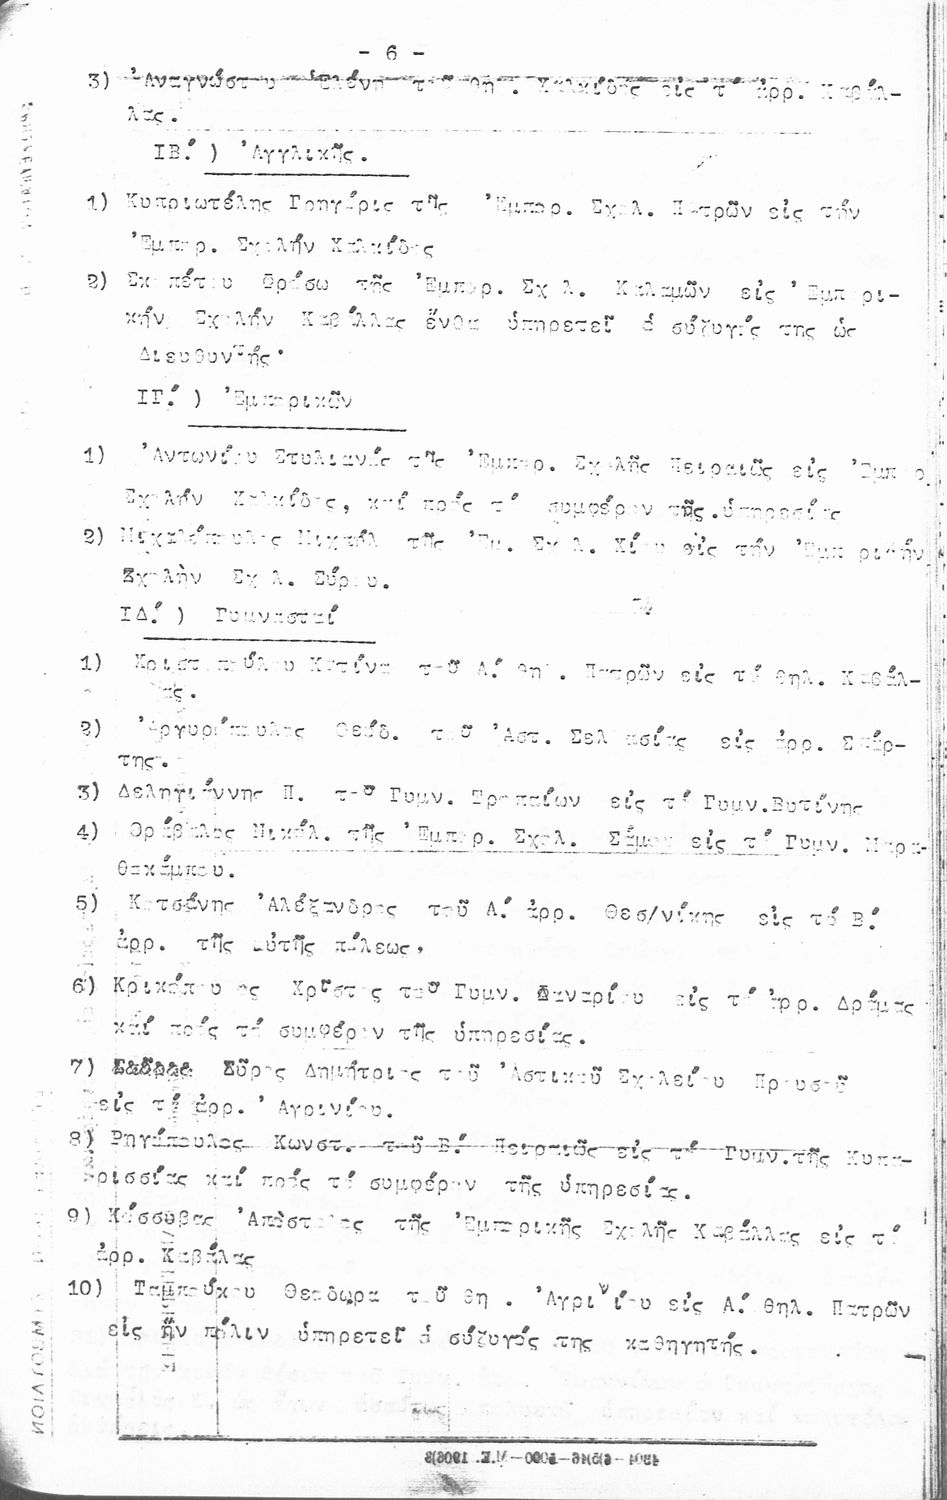 - 6 -
3) Ἀναγνώστου Ἑλένη τοῦ θηλ. Χαλκίδος εἰς τό ἀρρ. Καβάλ-
λας.
ΙΒ.́ ) Ἀγγλικῆς.
1) Κυπριωτέλης Γρηγόρις τῆς Ἐμπορ. Σχολ. Πατρῶν εἰς τήν
Ἐμπορ. Σχολήν Χαλκίδος
2) Σκοπέτου Φρόσω τῆς Ἐμπορ. Σχολ. Καλαμῶν εἰς Ἐμπορι-
κήν Σχολήν Καβάλλας ἔνθα ὑπηρετεῖ ὁ σύζυγός της ὡς
Διευθυντής.
ΙΓ.́ ) Ἐμπορικῶν
1) Ἀντωνίου Στυλιανός τῆς Ἐμπορ. Σχολῆς Πειραιῶς εἰς Ἐμπορ.
Σχολήν Χαλκίδος, καί πρός τό συμφέρον τῆς ὑπηρεσίας
2) Μιχαλόπουλος Μιχαήλ τῆς Ἐμ. Σχολ. Χίου εἰς τήν Ἐμπορικήν
Σχολὴν Σχολ. Σύρου.
ΙΔ.́ ) Γυμνασταί
1) Χριστοπούλου Κατίνα τοῦ Α.́ θηλ. Πατρῶν εἰς τό θηλ. Καβάλ-
λας.
2) Ἀργυρόπουλος Θεόδ. τοῦ Ἀστ. Σελλασίας εἰς ἀρρ. Σπάρ-
της.
3) Δεληγιάννης Π. τοῦ Γυμν. Τροπαίων εἰς τό Γυμν.Βυτίνης
4) Θράβαλος Νικόλ. τῆς Ἐμπορ. Σχολ. Σάμου εἰς τό Γυμν. Μαρα-
θοκάμπου.
5) Κατσάνης Ἀλέξανδρος τοῦ Α.́ ἀρρ. Θεσ/νίκης εἰς τό Β.́
ἀρρ. τῆς αὐτῆς πόλεως,
6) Κρικόπουλος Χρῆστος τοῦ Γυμν. Δαναρίου εἰς τό ἀρρ. Δράμας
καί πρός τό συμφέρον τῆς ὑπηρεσίας.
7) Σῦρος Δημήτριος τοῦ Ἀστικοῦ Σχολείου Προυσοῦ
εἰς τό ἀρρ. Ἀγρινίου.
8) Ρηγόπουλος Κωνστ. τοῦ Β.́ Πειραιῶς εἰς τό Γυμν.τῆς Κυπα-
ρισσίας καί πρός τό συμφέρον τῆς ὑπηρεσίας.
9) Κόσσυβας Ἀπόστολος τῆς Ἐμπορικῆς Σχολῆς Καβάλλας εἰς τό
ἀρρ. Καβάλας
10) Ταμπούκου Θεοδωρα τοῦ θηλ. Ἀγρινίου εἰς Α.́ θηλ. Πατρῶν
εἰς ἥν πόλιν ὑπηρετεῖ ὁ σύζυγός της καθηγητής.